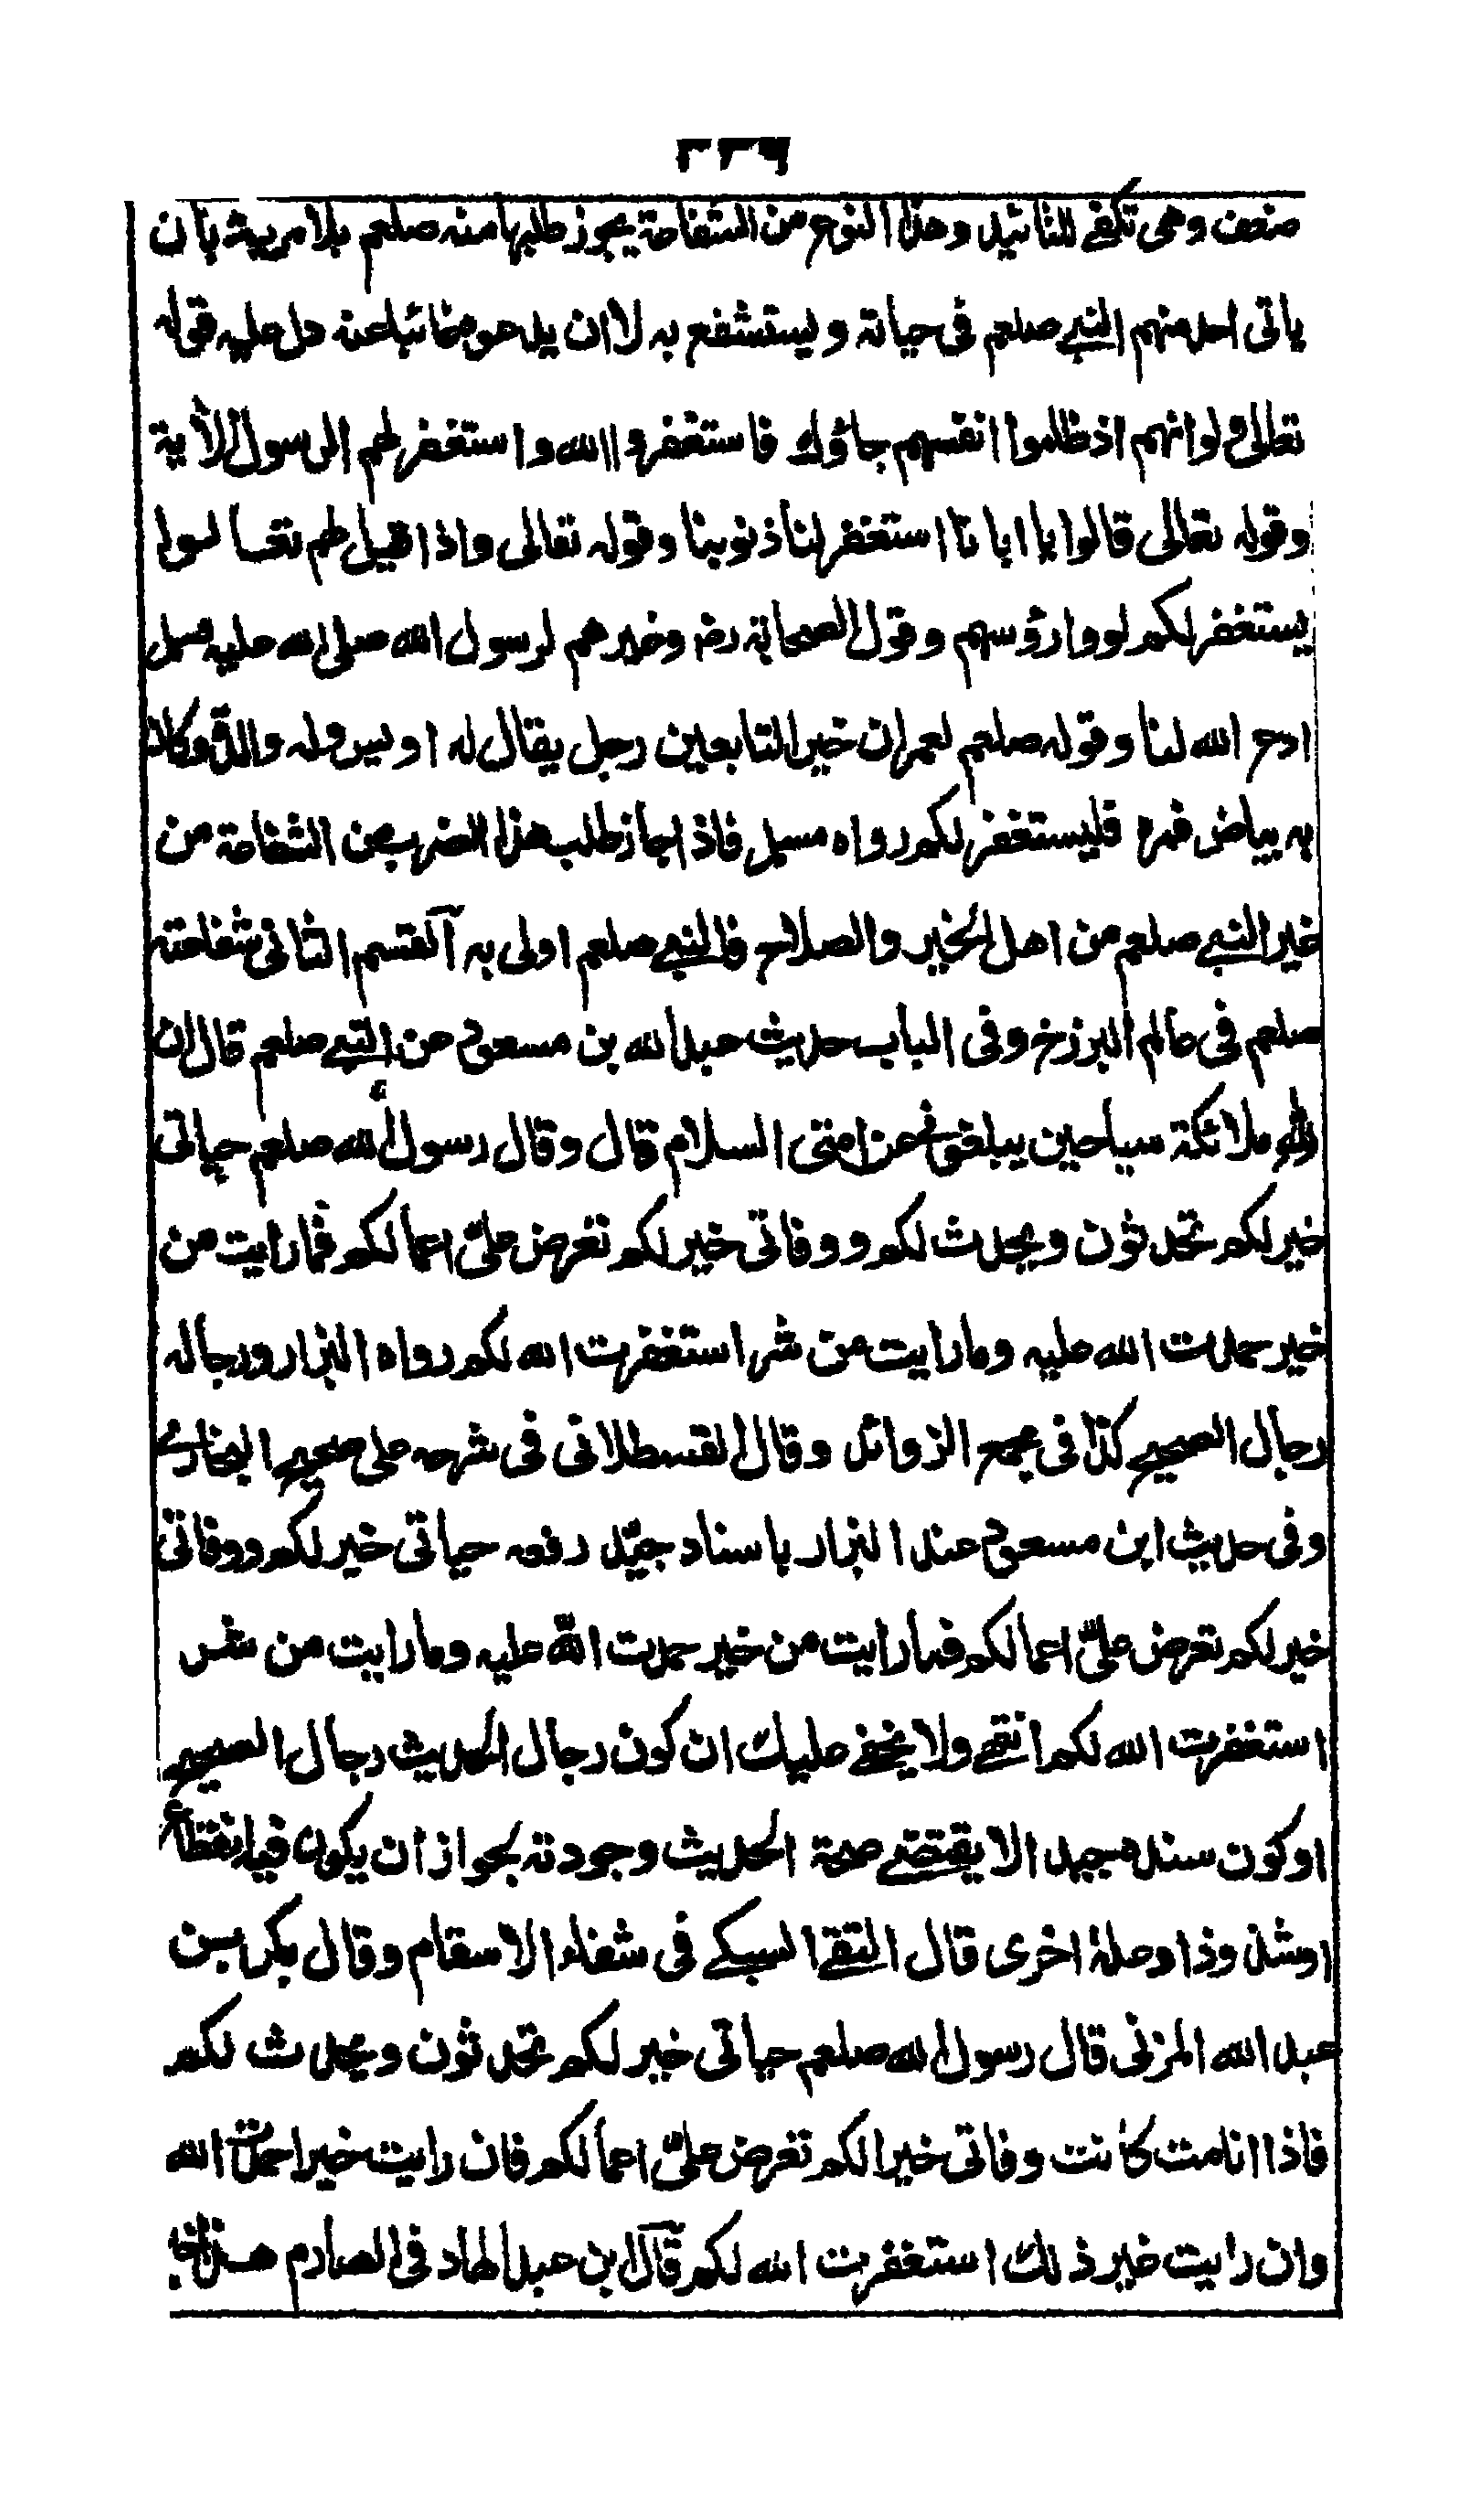 ٢٢٦
ضعف وهى تكفى للتائيد وهذا النوع من الشفاعة يجوز طلبها منه صلعم بلا مرية بان
ياتى احد منهم النبي صلعم فى حياته ويستشفع به لا ان يدعوه غائبا عنه دل عليه قوله
تعالى ولو انهم اذ ظلموا انفسهم جاؤك فاستغفروا الله واستغفر لهم الرسول الأية
وقوله تعالى قالوا يا ابانا استغفر لنا ذنوبنا وقوله تعالى واذا قيل لهم تعالوا
يستغفر لكم لووا رؤسهم وقول الصحابة رض وغيرهم لرسول الله صلى الله عليه وسلم
ادع الله لنا وقوله صلعم لعمران خير التابعين رجل يقال له اويس وله والدة وكان
به بياض فمره فليستغفر لكم رواه مسلم فاذا جاز طلب هذا الضرب من الشفاعة من
غير النبي صلعم من اهل الخير والصلاح فالنبي صلعم اولى به آلقسم الثانى شفاعته
صلعم فى عالم البرزخ وفى الباب حديث عبد الله بن مسعود عن النبي صلعم قال ان
لله ملائكة سياحين يبلغونى عن امتى السلام قال وقال رسول الله صلعم حياتى
خير لكم تحدثون ويحدث لكم ووفاتى خير لكم تعرض علىّ اعمالكم فما رايت من
خير حمدت الله عليه وما رايت من شر استغفرت الله لكم رواه البزار ورجاله
رجال الصحيح كذا فى مجمع الزوائد وقال القسطلانى فى شرحه على صحيح البخارى
وفى حديث ابن مسعود عند البزار باسناد جيّد رفعه حياتى خير لكم ووفاتى
خير لكم تعرض علىّ اعمالكم فما رايت من خير حمدت الله عليه وما رايت من شر
استغفرت الله لكم انتهى ولا يخفى عليك ان كون رجال الحديث رجال الصحيح
او كون سنده جيدا لا يقتضى صحة الحديث وجودته لجواز ان يكون فيه انقطاع
او شذوذ او علة اخرى قال التقى السبكى فى شفاء الاسقام وقال بكر بن
عبد الله المزنى قال رسول الله صلعم حياتى خير لكم تحدثون ويحدث لكم
فاذا انا مت كانت وفاتى خيرا لكم تعرض علىّ اعمالكم فان رايت خيرا حمدت الله
وان رايت غير ذلك استغفرت الله لكم قال ابن عبد الهاد فى الصارم